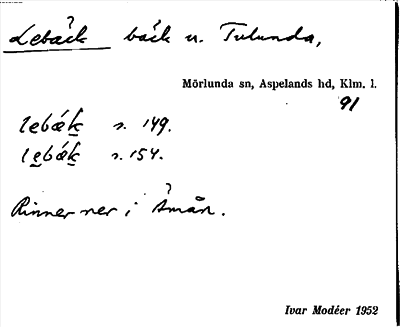 Lebäck bäck n. Tulunda,
Mörlunda sn, Aspelands hd, Klm. l.
91
lebǽk s. 149.
lebǽk s. 154.
?
Rinner ner i Åmån.
Ivar Modéer 1952